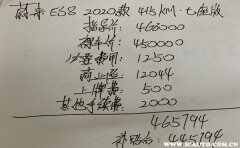 蔚来ES8 2020款 415KM·七座版
指导价: 468000
裸车价: 450000
必要费用: 1250
商业险: 12044
上牌费: 500
其他手续费: 2000
465794
补贴后: 445794
WWW.XCAUTO.COM.CN